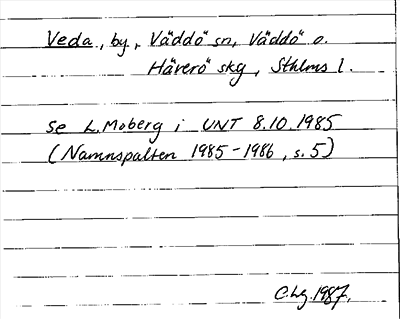 Veda, by, Väddö sn, Väddö o.
Häverö skg, Sthlms l.
se L. Moberg i UNT 8.10.1985
(Namnspalten 1985-1986, s. 5)
C.Lg. 1987.